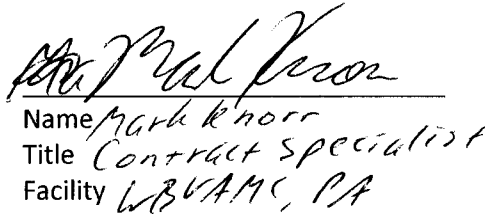 Mark Knorr
Name Mark Knorr
Title Contract Specialist
Facility WBVAMC, PA